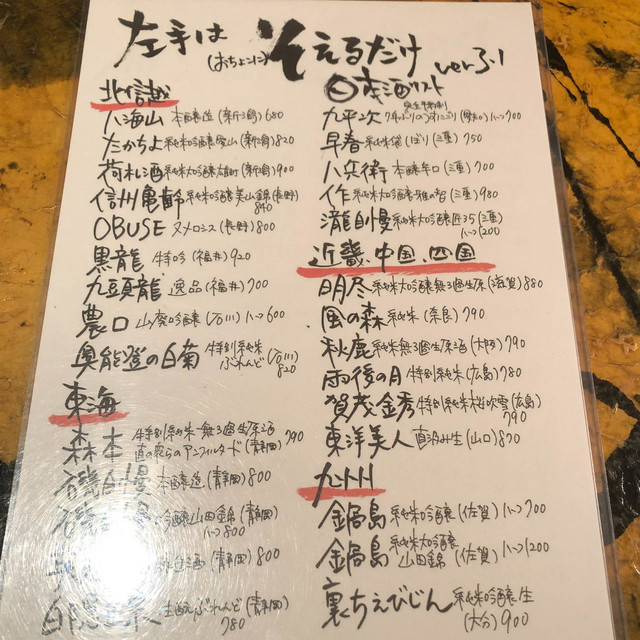 左手は
(おちょこに)
そえるだけ ver 3.1
日本酒リスト
北信越
八海山 本醸造(新潟)680
たかちよ 純米吟醸愛山(新潟)820
荷札酒 純米大吟醸雄町(新潟)900
信州亀齢 純米吟醸美山錦(長野)
840
OBUSE ヌメロシス(長野)800
黒龍 特吟(福井)920
九頭龍 逸品(福井)700
農口 山廃吟醸(石川)ハーフ600
奥能登の白菊 特別純米
ぶれんど(石川)
820
東海
森本 特別純米無ろ過生原酒
(静岡)790
磯自慢 本醸造(静岡)800
吟醸山田錦(静岡)
ハーフ800
(静岡)800
ぶれんど(静岡)
780
九平次 (愛知)ハーフ700
早春 純米袋しぼり(三重)750
八兵衛 本醸辛口(三重)700
作 純米大吟醸雅の智(三重)980
瀧自慢 純米大吟醸匠35(三重)
ハーフ1200
近畿、中国、四国
明尽 純米大吟醸無ろ過生原(滋賀)880
風の森 純米(奈良)790
秋鹿 純米無ろ過生原酒(大阪)790
雨後の月 特別純米(広島)780
賀茂金秀 特別純米桜吹雪(広島)
790
東洋美人 直汲み生(山口)870
九州
鍋島 純米吟醸(佐賀)ハーフ700
鍋島 純米大吟醸
山田錦(佐賀)ハーフ1200
裏ちえびじん 純米吟醸生
(大分)900